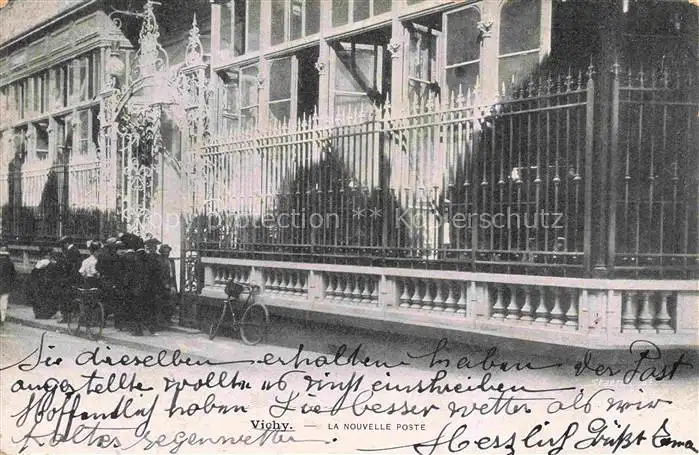 ** Copyright protection ** Kopierschutz **
Sie dieselben erhalten haben Der Post
angestellte wollte es nicht einschreiben
Hoffentlich haben Sie besser wetter als wir
kaltes regenwetter.
Vichy. — LA NOUVELLE POSTE
Herzlich Grüsst Emma